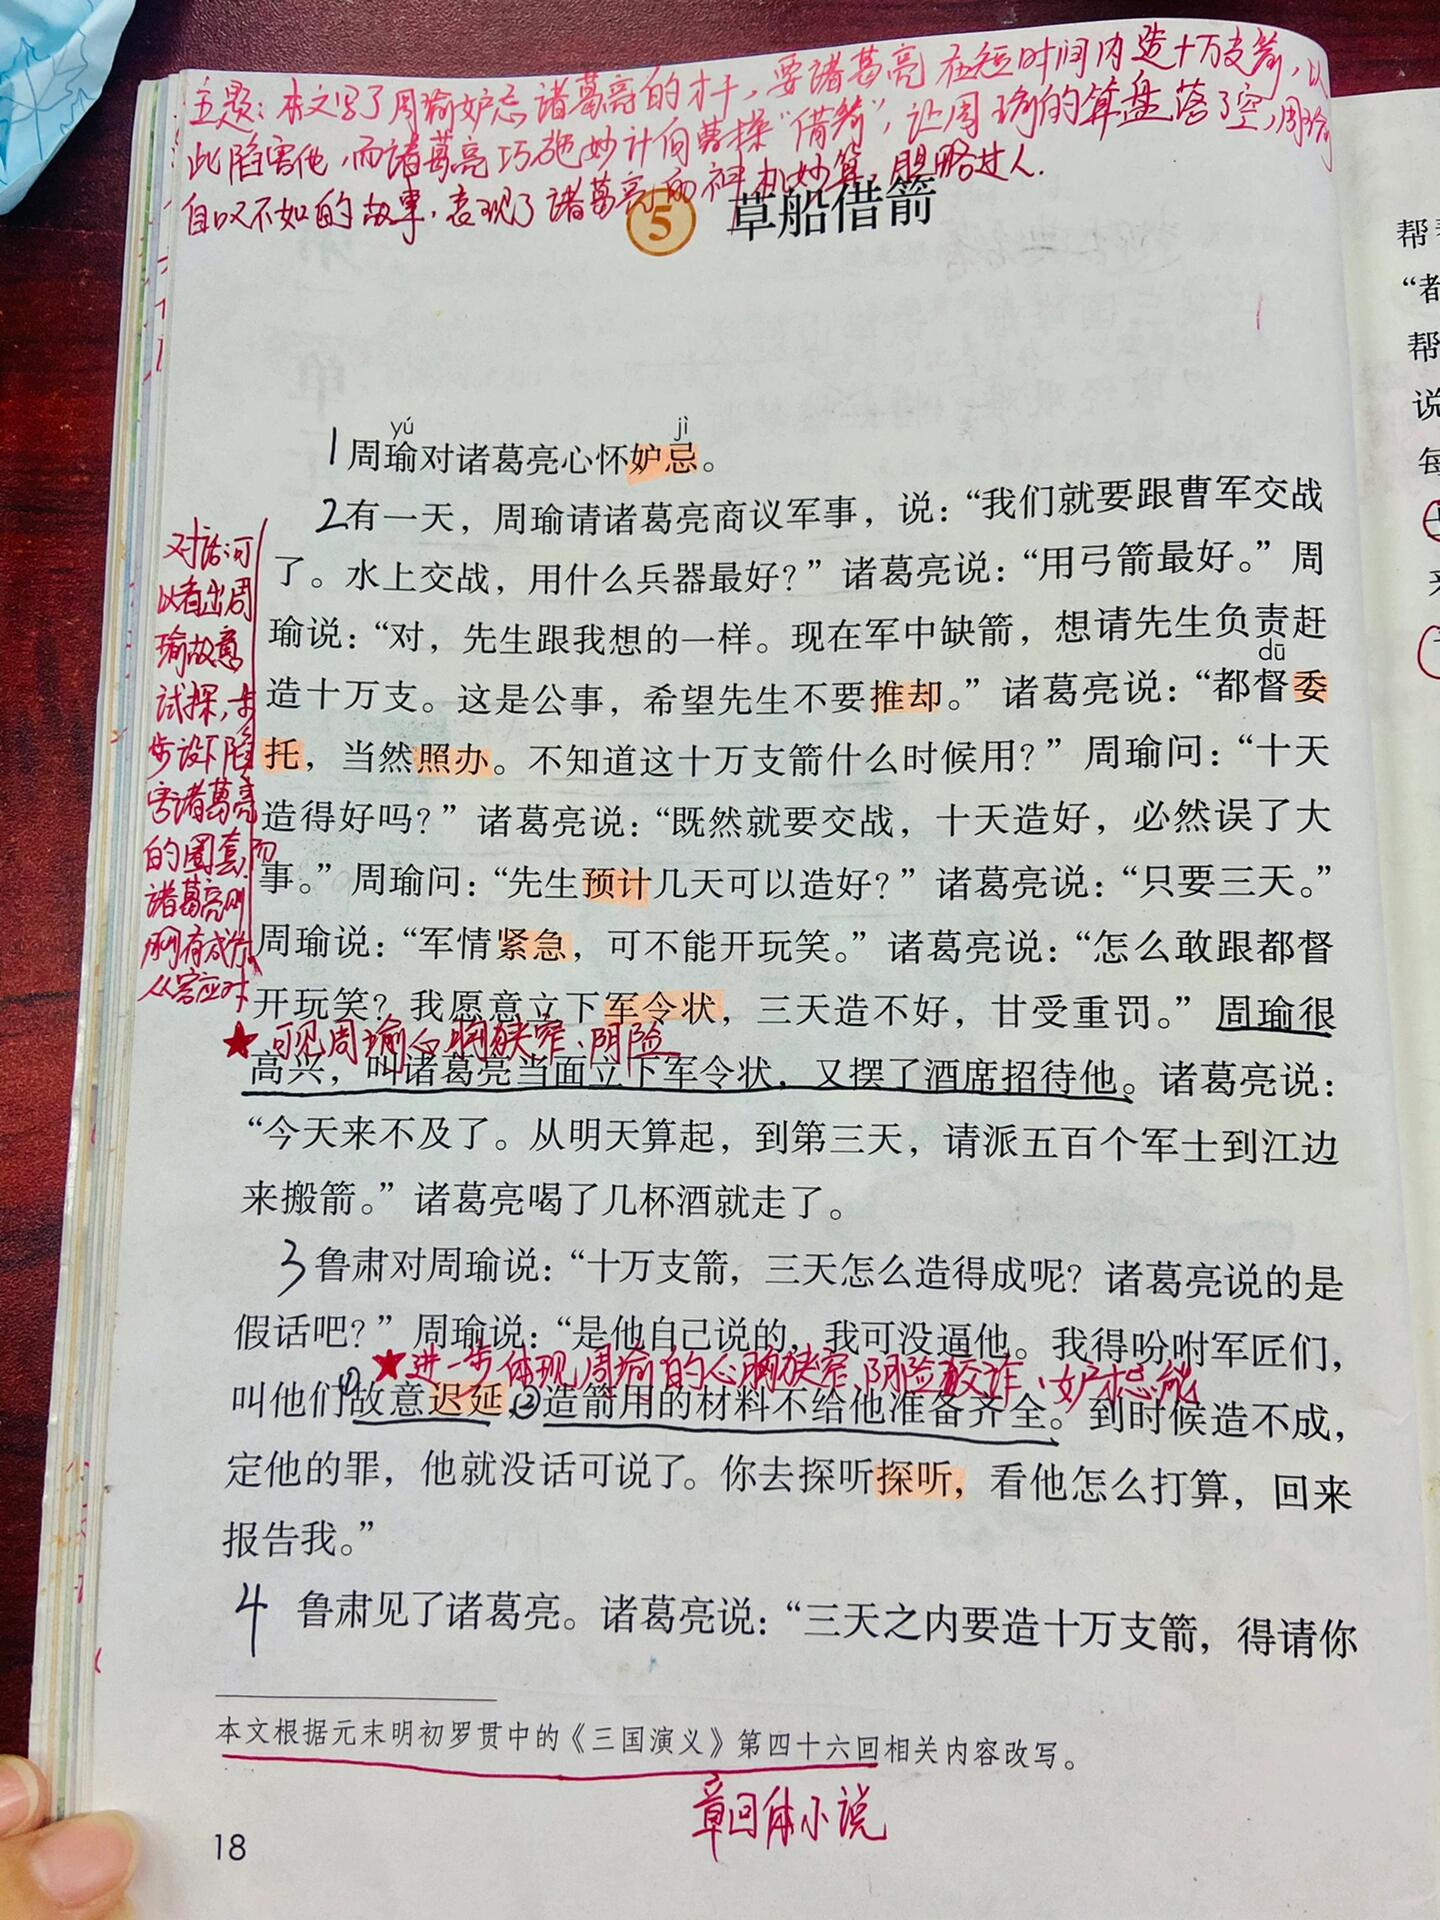 主题：本文写了周瑜妒忌诸葛亮的才干，要诸葛亮在短时间内造十万支箭，以
此陷害他，而诸葛亮巧施妙计向曹操“借箭”，让周瑜的算盘落了空，周瑜
自叹不如的故事，表现了诸葛亮的神机妙算，胆略过人.
5 草船借箭
yú jì
1周瑜对诸葛亮心怀妒忌。
2有一天，周瑜请诸葛亮商议军事，说：“我们就要跟曹军交战
了。水上交战，用什么兵器最好？”诸葛亮说：“用弓箭最好。”周
瑜说：“对，先生跟我想的一样。现在军中缺箭，想请先生负责赶
dū
造十万支。这是公事，希望先生不要推却。”诸葛亮说：“都督委
托，当然照办。不知道这十万支箭什么时候用？”周瑜问：“十天
造得好吗？”诸葛亮说：“既然就要交战，十天造好，必然误了大
事。”周瑜问：“先生预计几天可以造好？”诸葛亮说：“只要三天。”
周瑜说：“军情紧急，可不能开玩笑。”诸葛亮说：“怎么敢跟都督
开玩笑？我愿意立下军令状，三天造不好，甘受重罚。”周瑜很
★可见周瑜心胸狭窄、阴险
高兴，叫诸葛亮当面立下军令状，又摆了酒席招待他。诸葛亮说：
“今天来不及了。从明天算起，到第三天，请派五百个军士到江边
来搬箭。”诸葛亮喝了几杯酒就走了。
对话可
以看出周
瑜故意
试探，步
步设下陷
害诸葛亮
的圈套,而
诸葛亮则
胸有成竹
从容应对
3鲁肃对周瑜说：“十万支箭，三天怎么造得成呢？诸葛亮说的是
假话吧？”周瑜说：“是他自己说的，我可没逼他。我得吩咐军匠们，
★进一步体现周瑜的心胸狭窄 阴险狡诈、妒才忌能
叫他们①故意迟延，②造箭用的材料不给他准备齐全。到时候造不成，
定他的罪，他就没话可说了。你去探听探听，看他怎么打算，回来
报告我。”
4 鲁肃见了诸葛亮。诸葛亮说：“三天之内要造十万支箭，得请你
本文根据元末明初罗贯中的《三国演义》第四十六回相关内容改写。
章回体小说
18
帮
“都
帮
说
每